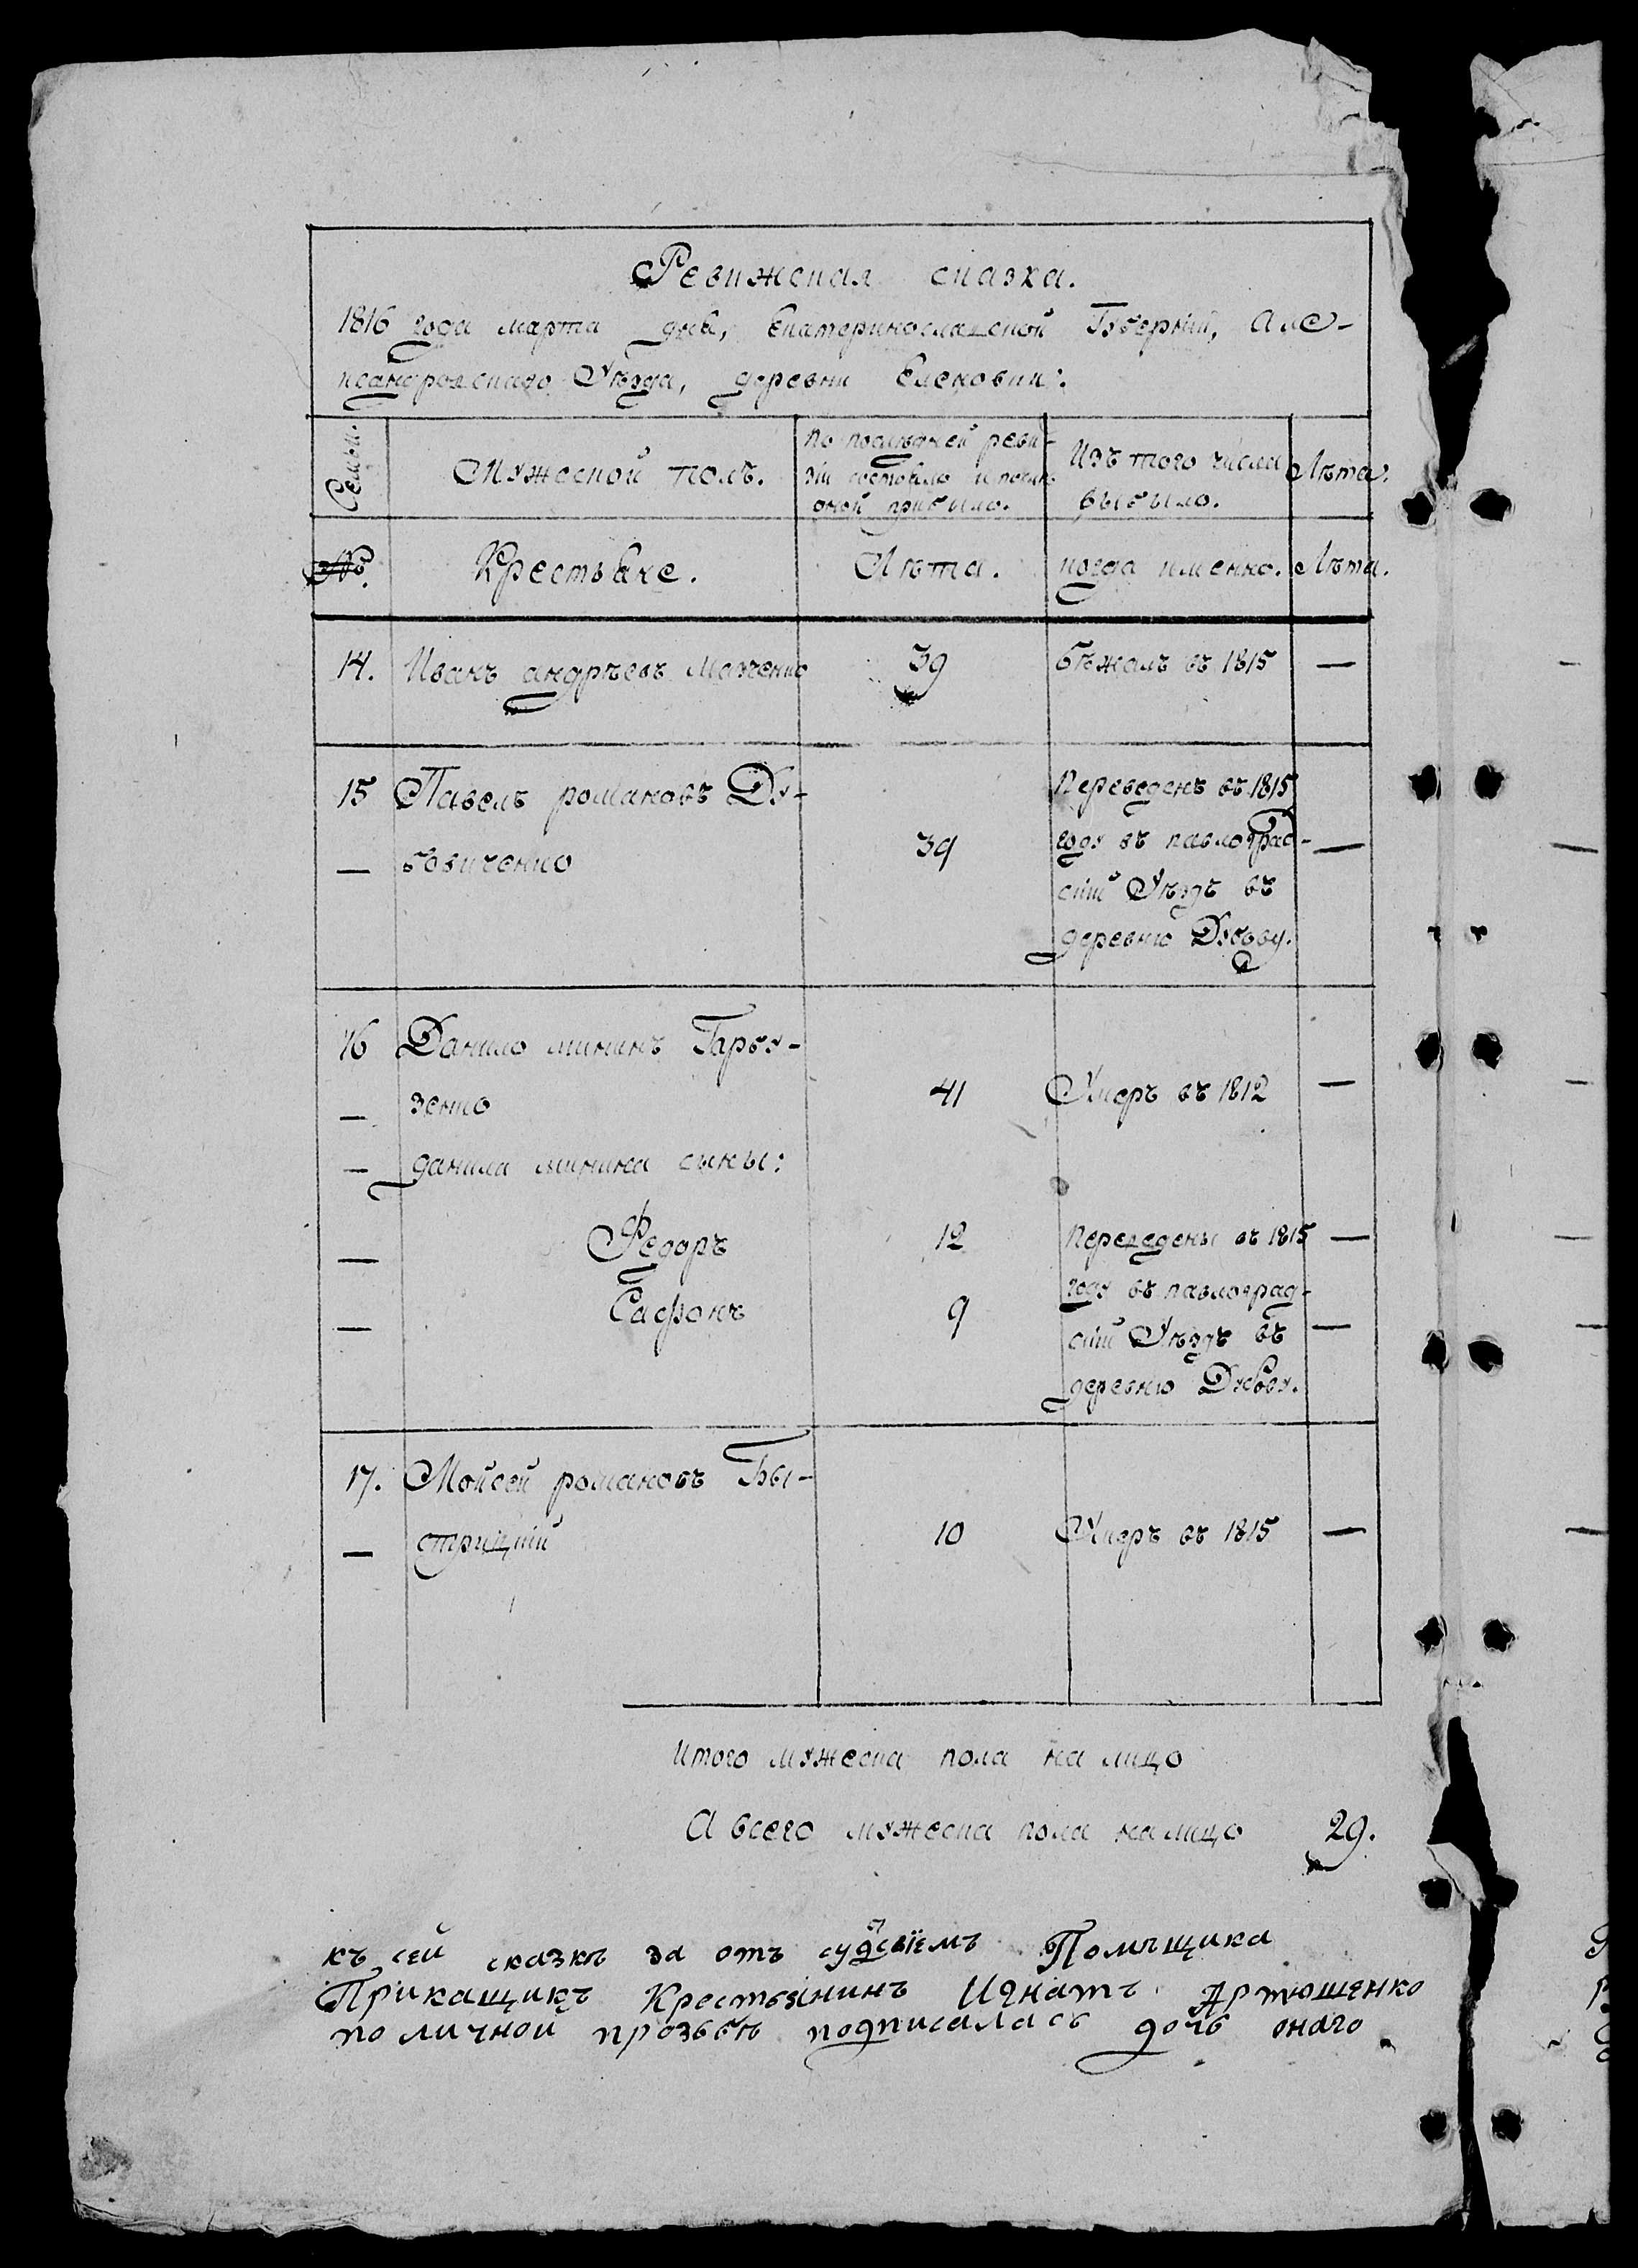 Ревижская сказка.
1816 года марта дня, Екатеринославской Губернии, Але-
ксандровскаго Уѣзда, деревни Елековки:
Семьи.
Мужеской полъ.
По послѣдней реви-
зіи состояло и послѣ
оной прибыло.
Изъ того числа
выбыло.
Лѣта.
№.
Крестьяне.
Лѣта.
когда именно.
Лѣта.
14. Иванъ андрѣевъ 39 бѣжалъ въ 1815 —
15 Павелъ романовъ Ду- Переведенъ въ 1815
— бовиченко 39 году въ павлоград- —
скій Уѣздъ въ
деревню Дубову.
16 Данило мининъ Гарбу-
— зенко 41 Умеръ въ 1812 —
— данила минина сыны:
— Федоръ 12 переведены въ 1815 —
— Сафонъ 9 году въ павлоград-
скій Уѣздъ въ —
деревню Дубову.
17. Мойсей романовъ Бы-
— стрицкій 10 Умеръ въ 1815 —
Итого мужеска пола на лицо
А всего мужеска пола налицо 29.
къ сей сказкѣ за отъ судсвіемъ Помѣщика
Прикащикъ Крестьянинъ Игнатъ Артюшенко
по личной прозьбѣ подписалась дочь онаго